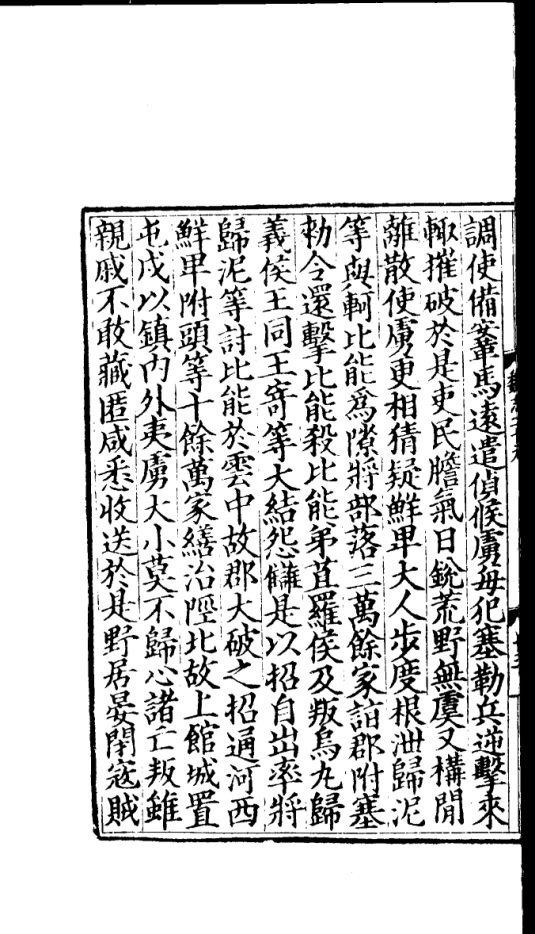 調使備鞌馬遠遣偵候虜每犯塞勒兵逆擊來
輙摧破於是吏民膽氣日銳荒野無虞又構閒
離散使虜更相猜疑鮮卑大人步度根泄歸泥
等與軻比能爲隙將部落三萬餘家詣郡附塞
勑令還擊比能殺比能弟苴羅侯及叛烏丸歸
義侯王同王寄等大結怨讎是以招自出率將
歸泥等討比能於雲中故郡大破之招通河西
鮮卑附頭等十餘萬家繕治陘北故上館城置
屯戍以鎮內外夷虜大小莫不歸心諸亡叛雖
親戚不敢藏匿咸悉收送於是野居晏閉寇賊